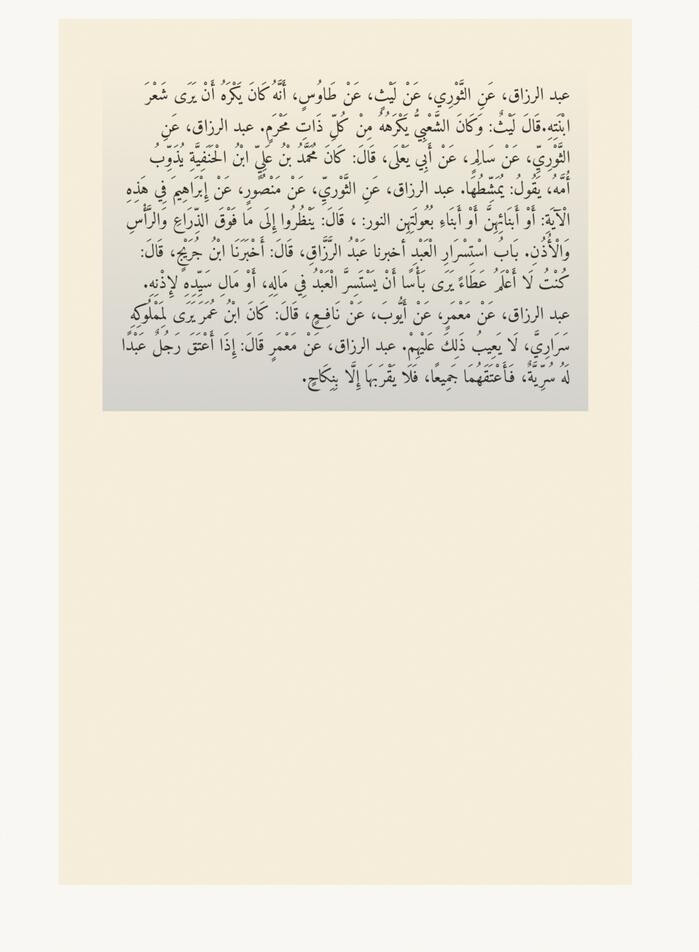 عبد الرزاق، عَنِ الثَّوْرِي، عَنْ لَيْثٍ، عَنْ طَاوُسٍ، أَنَّهُ كَانَ يَكْرَهُ أَنْ يَرَى شَعْرَ
ابْنَتِهِ.قَالَ لَيْثٌ: وَكَانَ الشَّعْبِيُّ يَكْرَهُهُ مِنْ كُلِّ ذَاتِ مَحْرَمٍ. عبد الرزاق، عَنِ
الثَّوْرِيِّ، عَنْ سَالِمٍ، عَنْ أَبِي يَعْلَى، قَالَ: كَانَ مُحَمَّدُ بْنُ عَلِيِّ ابْنُ الْحَنَفِيَّةِ يُذَوِّبُ
أُمَّهُ، يَقُولُ: يُمَشِّطُهَا. عبد الرزاق، عَنِ الثَّوْرِيِّ، عَنْ مَنْصُورٍ، عَنْ إِبْرَاهِيمَ فِي هَذِهِ
الْآيَةِ: أَوْ أَبَنَائِهِنَّ أَوْ أَبَنَاءِ بُعُولَتِهِن النور: ، قَالَ: يَنْظُرُوا إِلَى مَا فَوْقَ الذِّرَاعِ وَالرَّأْسِ
وَالْأُذُنِ. بَابُ اسْتِسْرَارِ الْعَبْدِ أخبرنا عَبْدُ الرَّزَّاقِ، قَالَ: أَخْبَرَنَا ابْنُ جُرَيْجٍ، قَالَ:
كُنْتُ لَا أَعْلَمُ عَطَاءً يَرَى بَأْسًا أَنْ يَسْتَسِرَّ الْعَبْدُ فِي مَالِهِ، أَوْ مَالِ سَيِّدِهِ لِإِذْنِهِ.
عبد الرزاق، عَنْ مَعْمَرٍ، عَنْ أَيُّوبَ، عَنْ نَافِعٍ، قَالَ: كَانَ ابْنُ عُمَرَ يَرَى لِمَمْلُوكِهِ
سَرَارِيَّ، لَا يَعِيبُ ذَلِكَ عَلَيْهِمْ. عبد الرزاق، عَنْ مَعْمَرٍ قَالَ: إِذَا أَعْتَقَ رَجُلٌ عَبْدًا
لَهُ سُرِّيَّةٌ، فَأَعْتَقَهُمَا جَمِيعًا، فَلَا يَقْرَبهَا إِلَّا بِنِكَاحٍ.